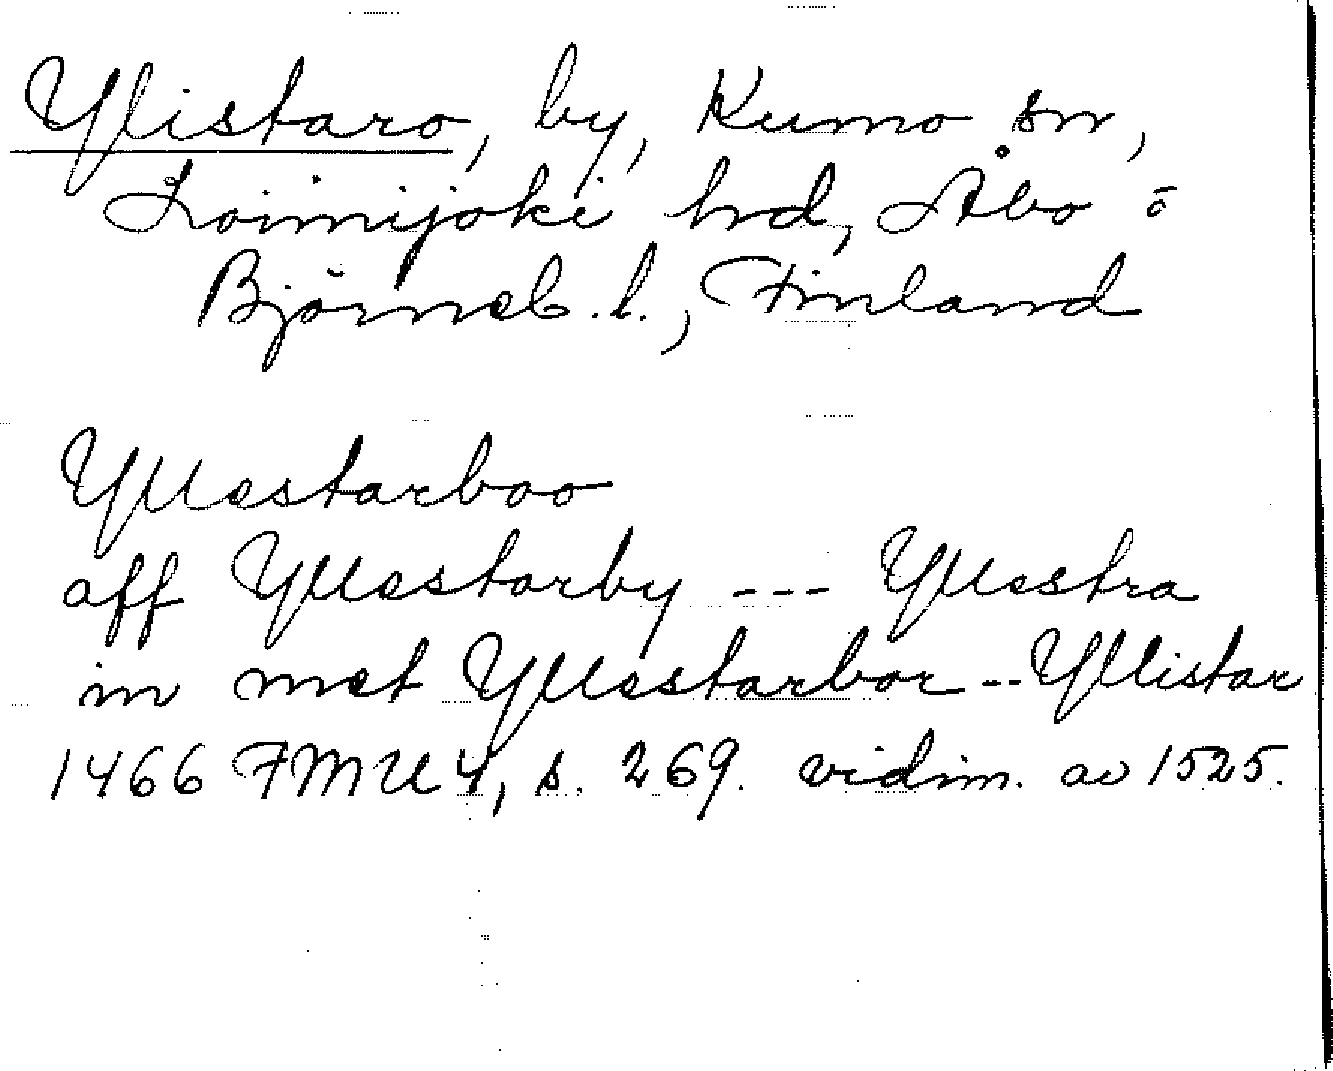 Ylistaro, by, Kumo sn,
Loimijoki hrd, Åbo o
Björneb. l., Finland
Yllestarboo
aff Yllestarby --- Yllestra
in met Yllestarbor -- Yllistar
1466 FMU 4, s. 269. vidim. av 1525.